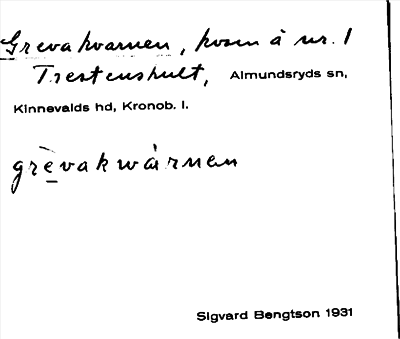 Grevakvarnen, kvarn å nr. 1
Trestenshult, Almundsryds sn,
Kinnevalds hd, Kronob. l.
grèvakwàrnen
Sigvard Bengtson 1931